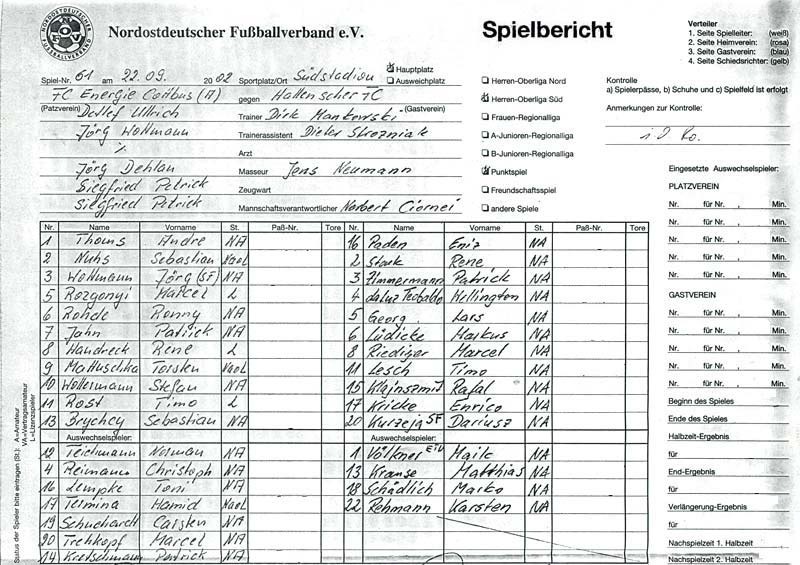 NORDOSTDEUTSCHER FUSSBALLVERBAND
NOFV
Nordostdeutscher Fußballverband e.V.
Spielbericht
Verteiler
1. Seite Spielleiter: (weiß)
2. Seite Heimverein: (rosa)
3. Seite Gastverein: (blau)
4. Seite Schiedsrichter: (gelb)
Spiel-Nr. 61 am 22.09. 2002 Sportplatz/Ort Südstadion
Hauptplatz
Ausweichplatz
FC Energie Cottbus (A) gegen Hallenscher FC
(Platzverein) (Gastverein)
Detlef Ullrich Trainer Dirk Mankowski
Jörg Wollmann Trainerassistent Dieter Strozniak
% Arzt
Jörg Dehlan Masseur Jens Neumann
Siegfried Petrick Zeugwart
Siegfried Petrick Mannschaftsverantwortlicher Norbert Ciornei
Herren-Oberliga Nord
Herren-Oberliga Süd
Frauen-Regionalliga
A-Junioren-Regionalliga
B-Junioren-Regionalliga
Punktspiel
Freundschaftsspiel
andere Spiele
Kontrolle
a) Spielerpässe, b) Schuhe und c) Spielfeld ist erfolgt
Anmerkungen zur Kontrolle:
i.O.
Nr. Name Vorname St. Paß-Nr. Tore Nr. Name Vorname St. Paß-Nr. Tore
1 Thoms Andre NA 16 Paden Eniz NA
2 Nuhs Sebastian Nael 2 Stark Rene NA
3 Wollmann Jörg (SF) NA 3 Zimmermann Patrick NA
5 Rozgonyi Marcel L 4 da Luz Teobaldo Wellington NA
6 Rohde Ronny NA 5 Georg Lars NA
7 Jahn Patrick NA 6 Lüdicke Maikus NA
8 Handreck René L 8 Riediger Marcel NA
9 Mattuschka Torsten Nael 11 Lesch Timo NA
10 Woltermann Stefan NA 15 Klajnszmit Rafal NA
11 Rost Timo L 17 Kricke Enrico NA
13 Brychcy Sebastian NA 20 Kurzeja SF Dariusz NA
Auswechselspieler: Auswechselspieler:
12 Teichmann Norman NA 1 Völkner ETW Maik NA
4 Reimann Christoph NA 13 Krause Matthias NA
16 Lempke Toni NA 18 Schädlich Marko NA
17 Termina Hamid Nael 22 Rehmann Karsten NA
19 Schuchardt Carsten NA
20 Trehkopf Marcel NA
14 Kretschmann Patrick NA
Status der Spieler bitte eintragen (St.): A=Amateur
VA=Vertragsamateur
L=Lizenzspieler
Eingesetzte Auswechselspieler:
PLATZVEREIN
Nr. für Nr. , Min.
Nr. für Nr. , Min.
Nr. für Nr. , Min.
Nr. für Nr. , Min.
Nr. für Nr. , Min.
GASTVEREIN
Nr. für Nr. , Min.
Nr. für Nr. , Min.
Nr. für Nr. , Min.
Nr. für Nr. , Min.
Nr. für Nr. , Min.
Beginn des Spieles
Ende des Spieles
Halbzeit-Ergebnis
für
End-Ergebnis
für
Verlängerung-Ergebnis
für
Nachspielzeit 1. Halbzeit
Nachspielzeit 2. Halbzeit